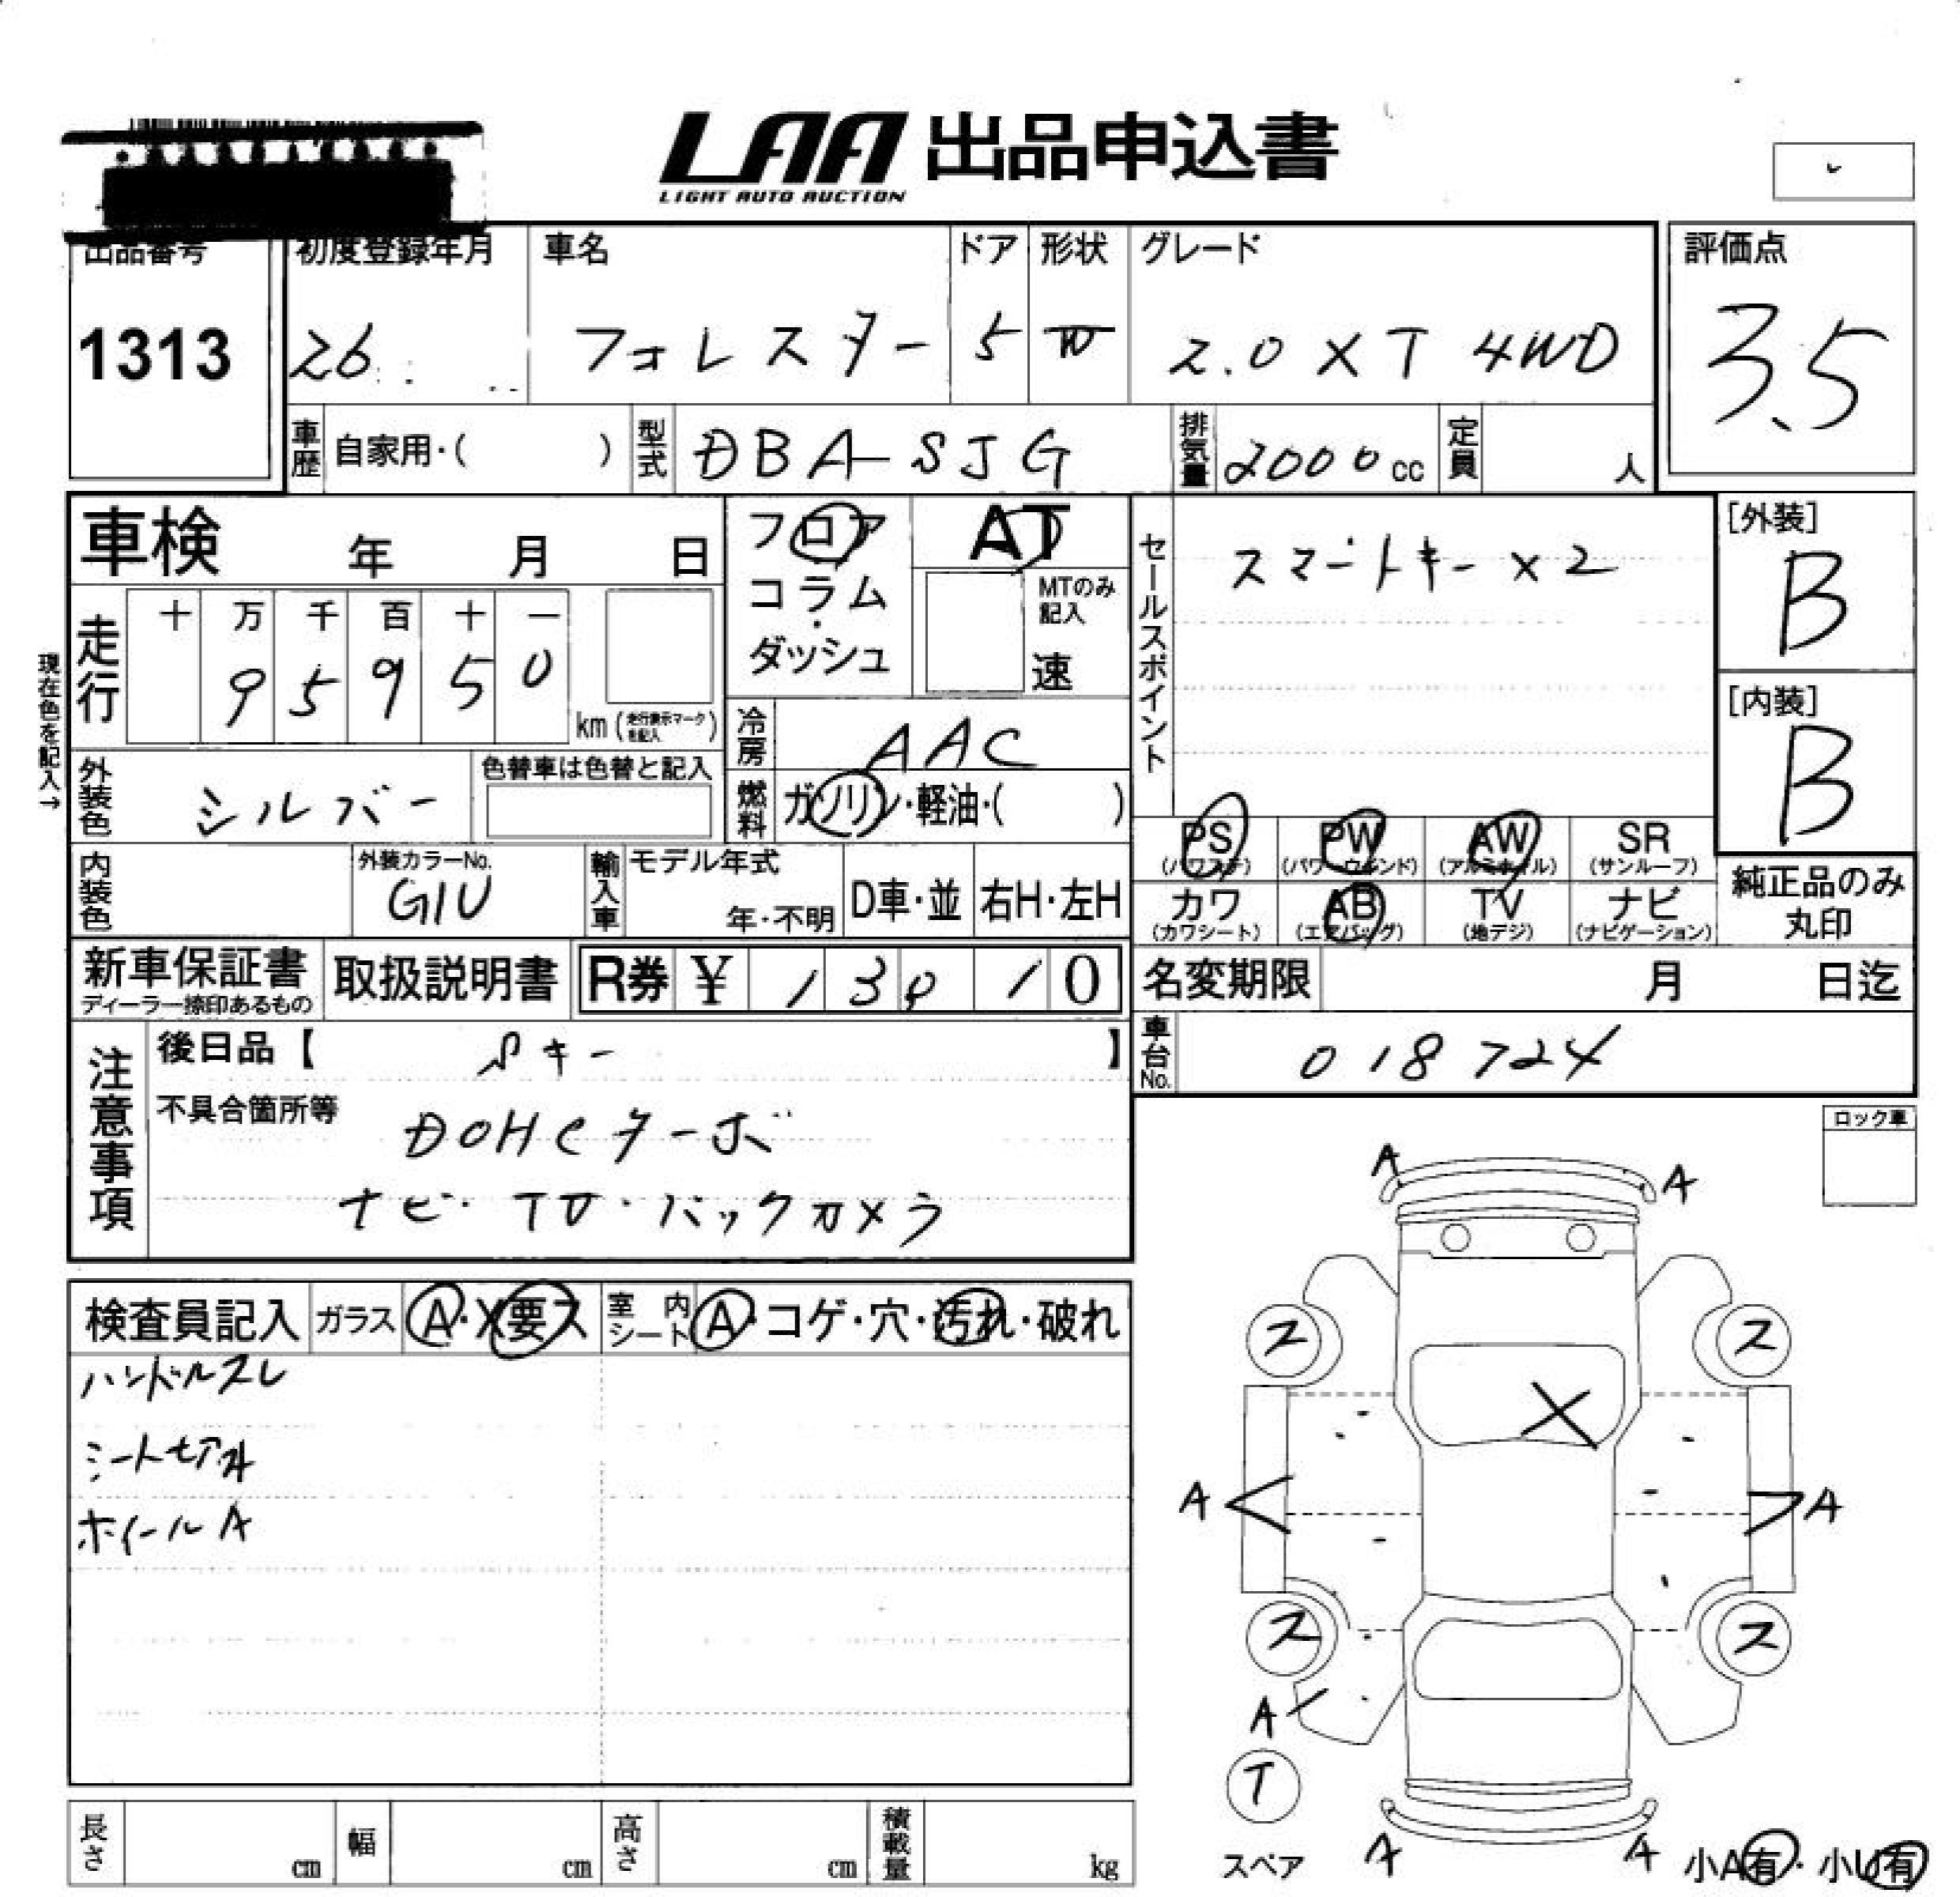 LAA 出品申込書
LIGHT AUTO AUCTION
出品番号 初度登録年月 車名 ドア 形状 グレード 評価点
1313 26 フォレスター 5 W 2.0 XT 4WD 3.5
車歴 自家用・( ) 型式 DBA-SJG 排気量 2000 cc 定員 人
車検 年 月 日
フロア
コラム
ダッシュ
AT
MTのみ記入
速
セールスポイント
スマートキー×2
[外装]
B
[内装]
B
現在色を記入→
走行 十 万 千 百 十 一
9 5 9 5 0
km (走行表示マークを記入)
冷房 AAC
外装色 シルバー 色替車は色替と記入
燃料 ガソリン・軽油・( )
PS PW AW SR
(パワステ) (パワーウインド) (アルミホイル) (サンルーフ)
カワ AB TV ナビ
(カワシート) (エアバッグ) (地デジ) (ナビゲーション)
純正品のみ
丸印
内装色 外装カラーNo. G1U 輸入車 モデル年式 年・不明 D車・並 右H・左H
新車保証書 取扱説明書 R券 ¥ 0
ディーラー捺印あるもの
名変期限 月 日迄
車台No. 018724
注意事項
後日品【 Sキー 】
不具合箇所等
DOHCターボ
ナビ・TV・バックカメラ
ロック車
検査員記入 ガラス A・X要ス 室内シート A・コゲ・穴・汚れ・破れ
ハンドルスレ
ホイールA
A A
ス ス
X
A A
ス ス
A
T
スペア
A A
小A有・小U有
長さ cm 幅 cm 高さ cm 積載量 kg